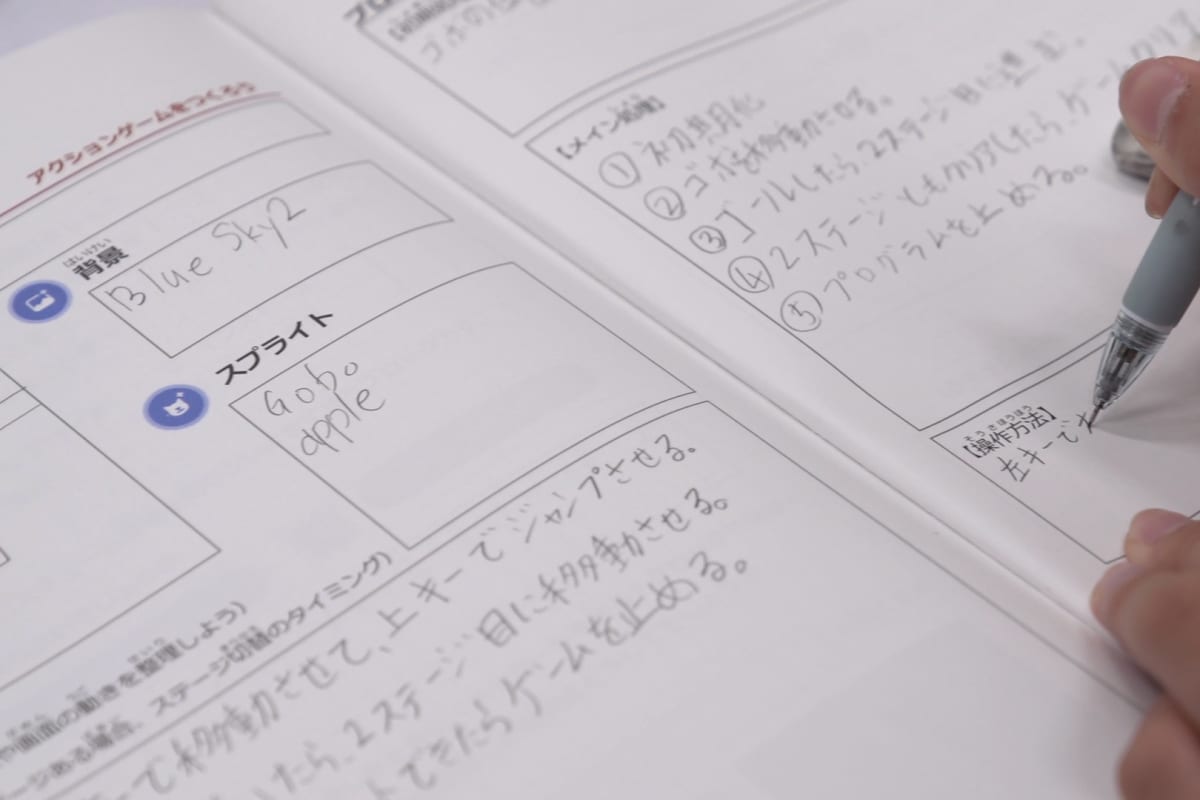 アクションゲームをつくろう
はいけい
背景
Blue Sky2
スプライト
Gobo
apple
画面の動きを整理しよう）
ージある場合、ステージ切替のタイミング）
で移動させて、上キーでジャンプさせる。
たら、2ステージ目に移動させる。
できたらゲームを止める。
【メイン処理】
① 初期化
② ゴボを移動させる。
③ ゴールしたら、2ステージ目に進む。
④ 2ステージともクリアしたら、ゲームクリア
⑤ プログラムを止める。
そうさほうほう
【操作方法】
左キーで